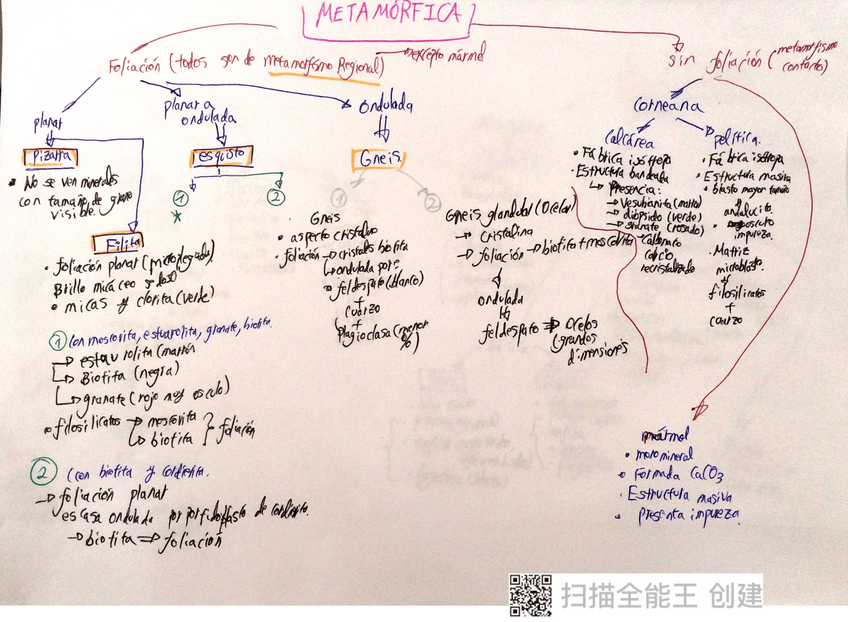 METAMÓRFICA
Foliación (todos son de metamorfismo Regional)
excepto mármol
sin foliación (metamorfismo contacto)
planar
planar a ondulada
Ondulada
Corneana
Pizarra
esquisto
Gneis
calcárea
pelítica.
• No se ven minerales
con tamaño de grano
visible.
1
2
1
2
Filita
• foliación planar (microplegado)
Brillo micáceo
• micas y clorita (verde)
Gneis
• aspecto cristalino
• foliación → cristales biotita
ondulada por:
• feldespato (blanco)
+
cuarzo
+
plagioclasa (menor
%)
Gneis glandular (Ocelar)
→ cristalina
→ foliación → biotita + moscovita
ondulada
feldespato ⇒ Ocelos
(grandes
dimensiones
• Fábrica isótropa
• Estructura bandeada
↳ Presencia:
→ vesubianita (marrón)
→ diópsido (verde)
→ granate (rosado)
→ carbonato
calcio
recristalizado
• Fábrica isótropa
• Estructura masiva
• blasto mayor tamaño
andalucita
impureza.
• Matriz
microblast.
filosilicatos
+
cuarzo
1 (con moscovita, estaurolita, granate, biotita.
→ estaurolita (marrón
→ Biotita (negra)
→ granate (rojo muy oscuro)
• filosilicatos → moscovita
→ biotita } foliación
2 (con biotita y cordierita.
→ foliación planar
escasa ondulada por porfidoblasto de cordierita.
→ biotita ⇒ foliación
mármol
• monomineral
• Formada CaCO3
• Estructura masiva
• presenta impureza
扫描全能王 创建